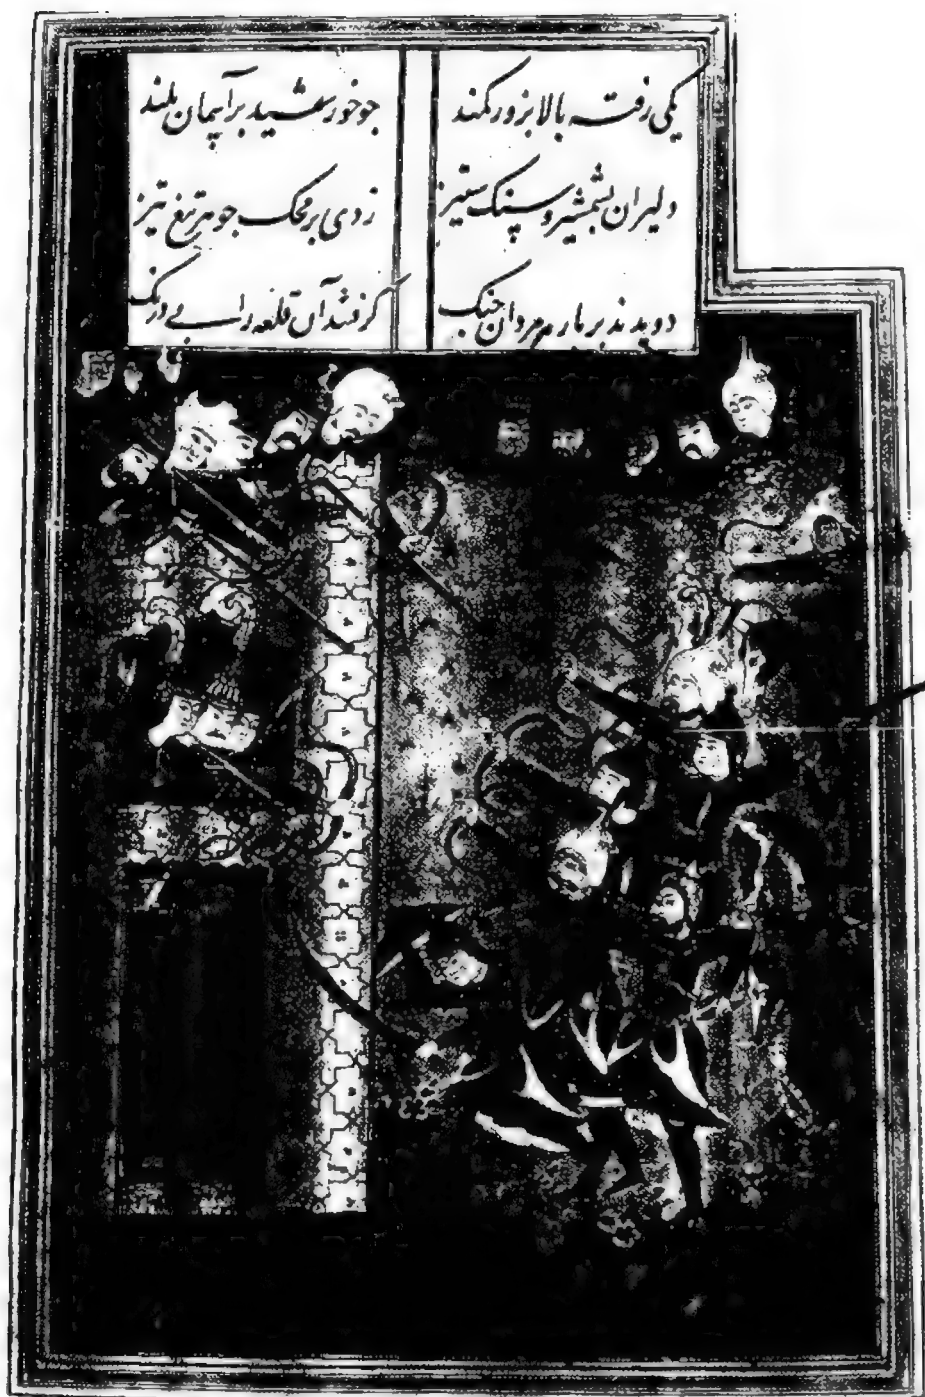 یکی رفته بالا بزور کمند جو خورشید بر آسمان بلند
دلیران بشمشیر و سنک ستیز زدی بر محک جوهر تیغ تیز
دویدند بر باره مردان جنک گرفتند آن قلعه را بی درنک